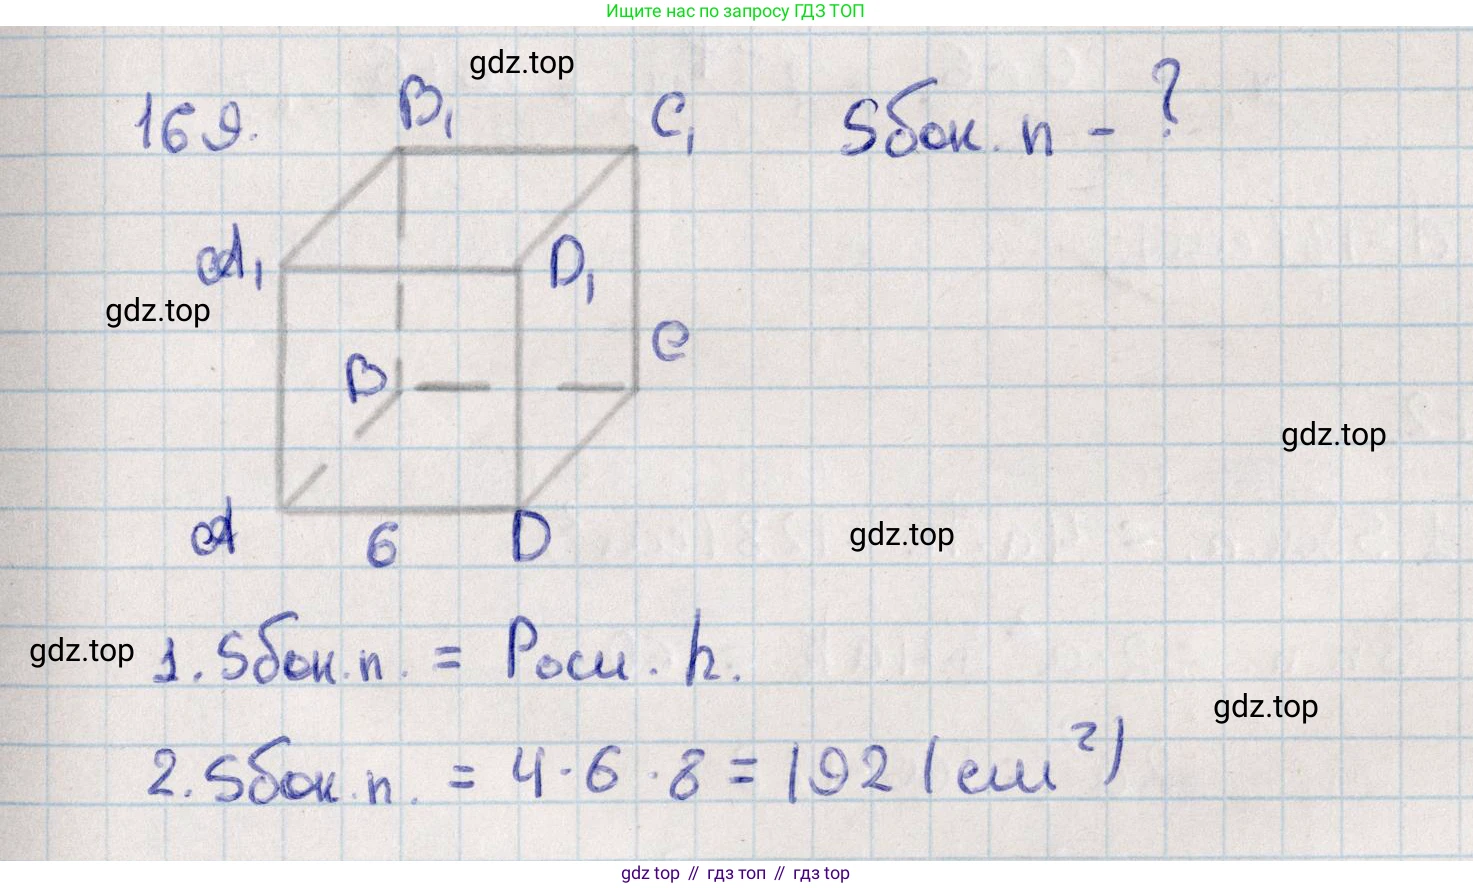 Ищите нас по запросу ГДЗ ТОП
gdz.top
169.
B₁
C₁
Sбок. п - ?
A₁
D₁
gdz.top
C
B
gdz.top
A
6
D
gdz.top
gdz.top
1. Sбок. п. = Pосн · h.
gdz.top
2. Sбок. п. = 4 · 6 · 8 = 192 (см²)
gdz top // гдз топ // гдз top